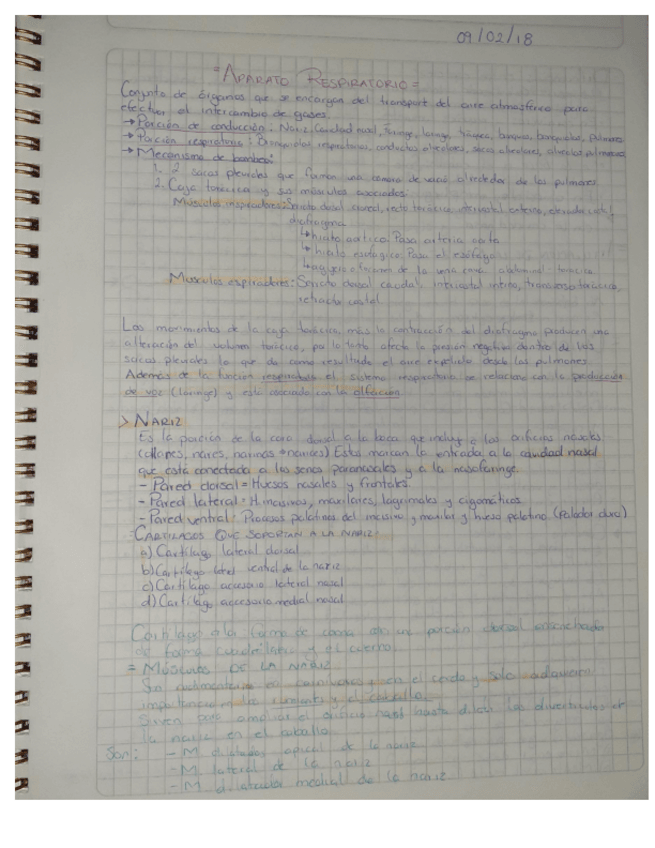 09/02/18
= APARATO RESPIRATORIO =
Conjunto de órganos que se encargan del transport del aire atmosférico para
efectuar el intercambio de gases.
→ Porción de conducción: Nariz, Cavidad nasal, faringe, laringe, tráquea, bronquios, bronquiolos, pulmones
→ Porción respiratoria: Bronquiolos respiratorios, conductos alveolares, sacos alveolares, alveolos pulmonares
→ Mecanismo de bombeo:
1. 2 sacos pleurales que forman una camara de vacio alrededor de los pulmones.
2. Caja torácica y sus músculos asociados.
Músculos inspiradores: Serrato dorsal craneal, recto torácico, intercostal externo,
diafragma
↳ hiato aortico: Pasa arteria aorta
↳ hiato esofagico: Pasa el esófago
de la vena cava abdominal
Musculos espiradores: Serrato dorsal caudal, intercostal interno, transverso torácico,
retracto costal
Los movimientos de la caja torácica, más la contracción del diafragma producen una
alteración del volumen torácico, por lo tanto afecta la presión negativa dentro de los
sacos pleurales lo que da como resultado el aire expelido desde los pulmones
Además de la función respiratoria el sistema respiratorio se relaciona con la producción
de voz (laringe) y está asociado con la olfación.
> NARIZ
Es la porción de la cara dorsal a la boca que incluye a los orificios nasales
(ollares, nares, narinas o narices) Estos marcan la entrada a la cavidad nasal
que está conectada a los senos paranasales y a la nasofaringe.
- Pared dorsal = Huesos nasales y frontales.
- Pared lateral = H. incisivos, maxilares, lagrimales y cigomáticos.
- Pared ventral: Procesos palatinos del incisivo y maxilar y hueso palatino. (Paladar duro)
CARTILAGOS QUE SOPORTAN A LA NARIZ:
a) Cartilago lateral dorsal
b) Cartilago lateral ventral de la nariz
c) Cartilago accesorio lateral nasal
d) Cartilago accesorio medial nasal
Cartilago la forma de coma porción dorsal ensanchada
de forma cuadrilatera y el cuerno.
= MÚSCULOS DE LA NARIZ
Son en el cerdo y solo adquieren
importancia en los rumiantes y el caballo.
Sirven para ampliar el orificio nasal hasta
la nariz en el caballo.
Son: - M. dilatador apical de la nariz.
- M. lateral de la nariz
- M. dilatador medial de la nariz.